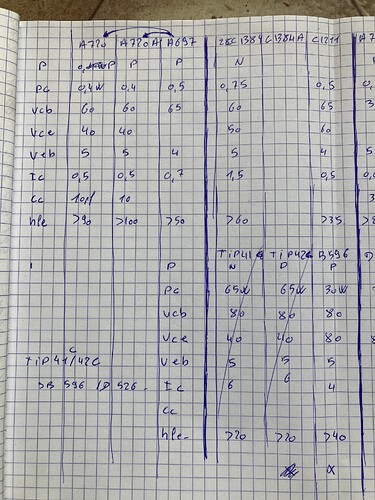 A720 A720A A697 2SC1384 C1384A C1211 A7
P P P P N
Pc 0,4W 0,4 0,5 0,75 0,5
Vcb 60 60 65 60 65
Vce 40 40 50 60
Veb 5 5 4 5 4 5
Ic 0,5 0,5 0,7 1,5 0,5
Cc 10 10
hfe >90 >100 >50 >60 >35
TiP41 TiP42 B596
P N P P
Pc 65W 65W 30W
Vcb 80 80 80
Vce 40 40 80
TiP41/42C Veb 5 5 5
B 596 /D 526 - Ic 6 6 4
Cc
hfe- >20 >20 >40
X